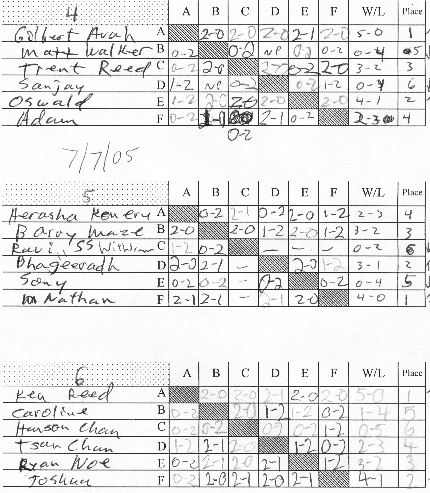 4 A B C D E F W/L Place
Gilbert Avah A 2-0 2-0 2-0 2-1 2-0 5-0 1
Matt Walker B 0-2 0-2 NP 0-2 0-4 5
Trent Reed C 0-2 2-0 0-2 2-0 3-2 3
Sanjay D 1-2 NP 0-2 0-2 1-2 0-4 6
Oswald E 1-2 2-0 2-0 2-0 2-0 4-1 2
Adam F 0-2 2-1 0-2 2-3 4
0-2
7/7/05
5 A B C D E F W/L Place
Herasha A 0-2 2-1 0-2 2-0 1-2 2-3 4
Barry Maze B 2-0 2-0 1-2 2-0 1-2 3-2 3
Ravi C 1-2 0-2 — — — 0-2 6
Bhageeradh D 2-0 2-1 — 2-0 1-2 3-1 2
Sony E 0-2 0-2 — 0-2 0-2 0-4 5
Nathan F 2-1 2-1 — 2-1 2-0 4-0 1
6 A B C D E F W/L Place
Ken Reed A 2-0 2-0 2-1 2-0 2-0 5-0 1
Caroline B 0-2 2-0 1-2 1-2 0-2 1-4 5
Hanson Chan C 0-2 0-2 0-2 0-2 1-2 0-5 6
Tsan Chan D 1-2 2-1 2-0 1-2 0-2 2-3 4
Ryan Noe E 0-2 2-1 2-0 2-1 1-2 3-2 3
Joshua F 0-2 2-0 2-1 2-0 2-1 4-1 2